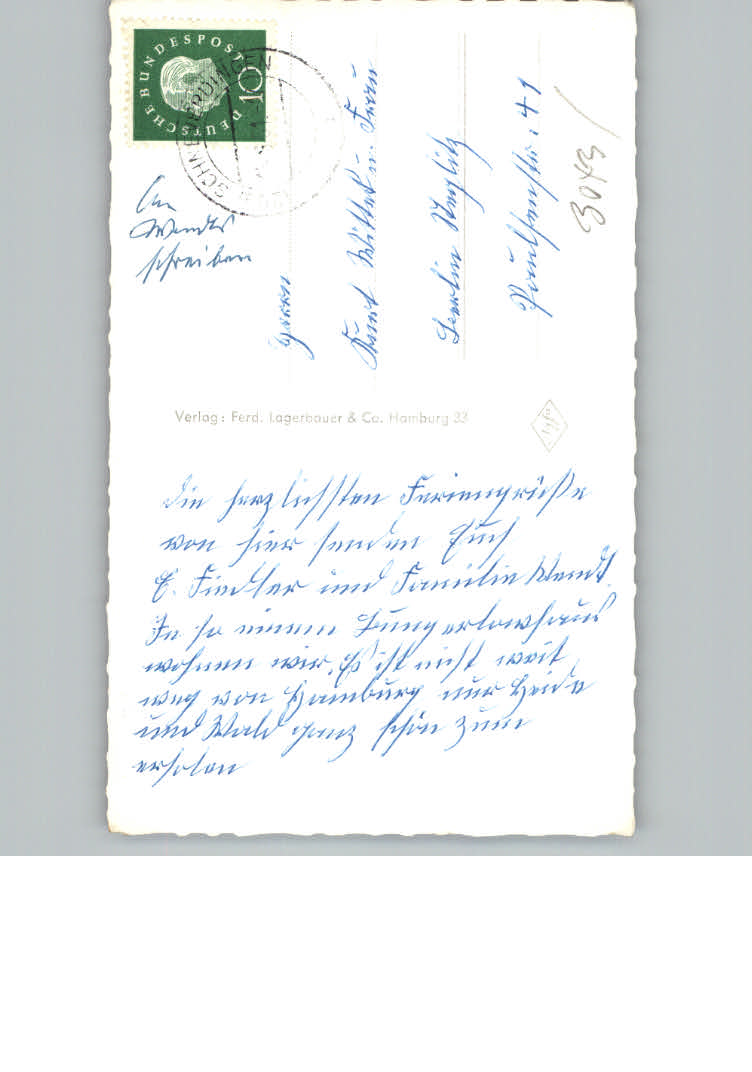 DEUTSCHE BUNDESPOST
10
SCHNEVERDINGEN
An
Wendts
schreiben
Herrn
Kurt Wittek u. Frau
Berlin Steglitz
Paulsenstr. 41
3043
Verlag: Ferd. Lagerbauer & Co. Hamburg 33
Agfa
Die herzlichsten Feriengrüße
von hier senden Euch
E. Fiedler und Familie Wendt.
In so einem Bungerlowhaus
wohnen wir. Es ist nicht weit
weg von Hamburg nur Heide
und Wald ganz schön zum
erholen